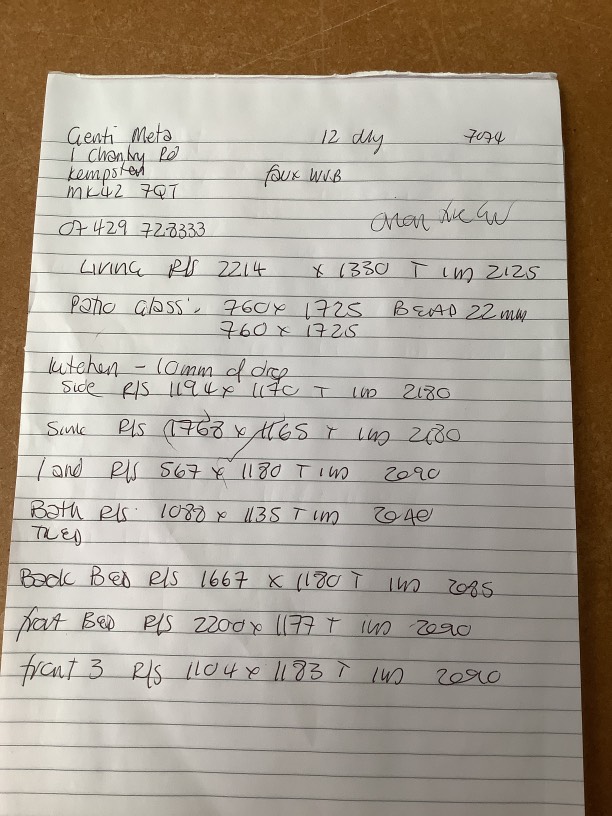 Genti Meta 12 dly 7074
1 Chantry Rd
Kempston faux WVB
MK42 7QT
07429 728333
Living R/S 2214 x 1330 T IW 2125
Patio Glass: 760 x 1725 BEAD 22mm
760 x 1725
kitchen - 10mm of drop
Side R/S 1194 x 1170 T IW 2180
Sink R/S 1768 x 1165 T IW 2180
Land R/S 567 x 1180 T IW 2090
Bath R/S 1088 x 1135 T IW 2040
TILED
Back BED R/S 1667 x 1180 T IW 2085
front BED R/S 2200 x 1177 T IW 2090
front 3 R/S 1104 x 1183 T IW 2090